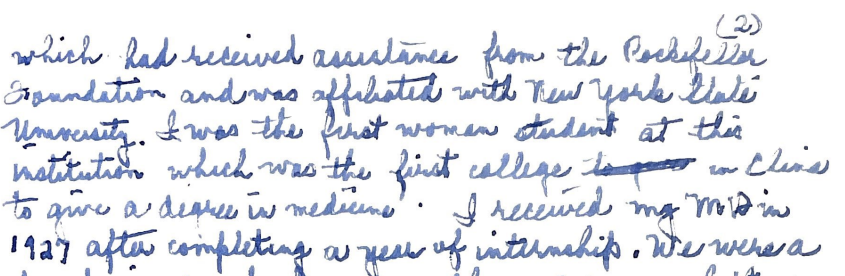 (2)
which had received assistance from the Rockefeller
Foundation and was affiliated with New York State
University. I was the first woman student at this
institution which was the first college in China
to give a degree in medicine. I received my MD in
1927 after completing a year of internship. We were a